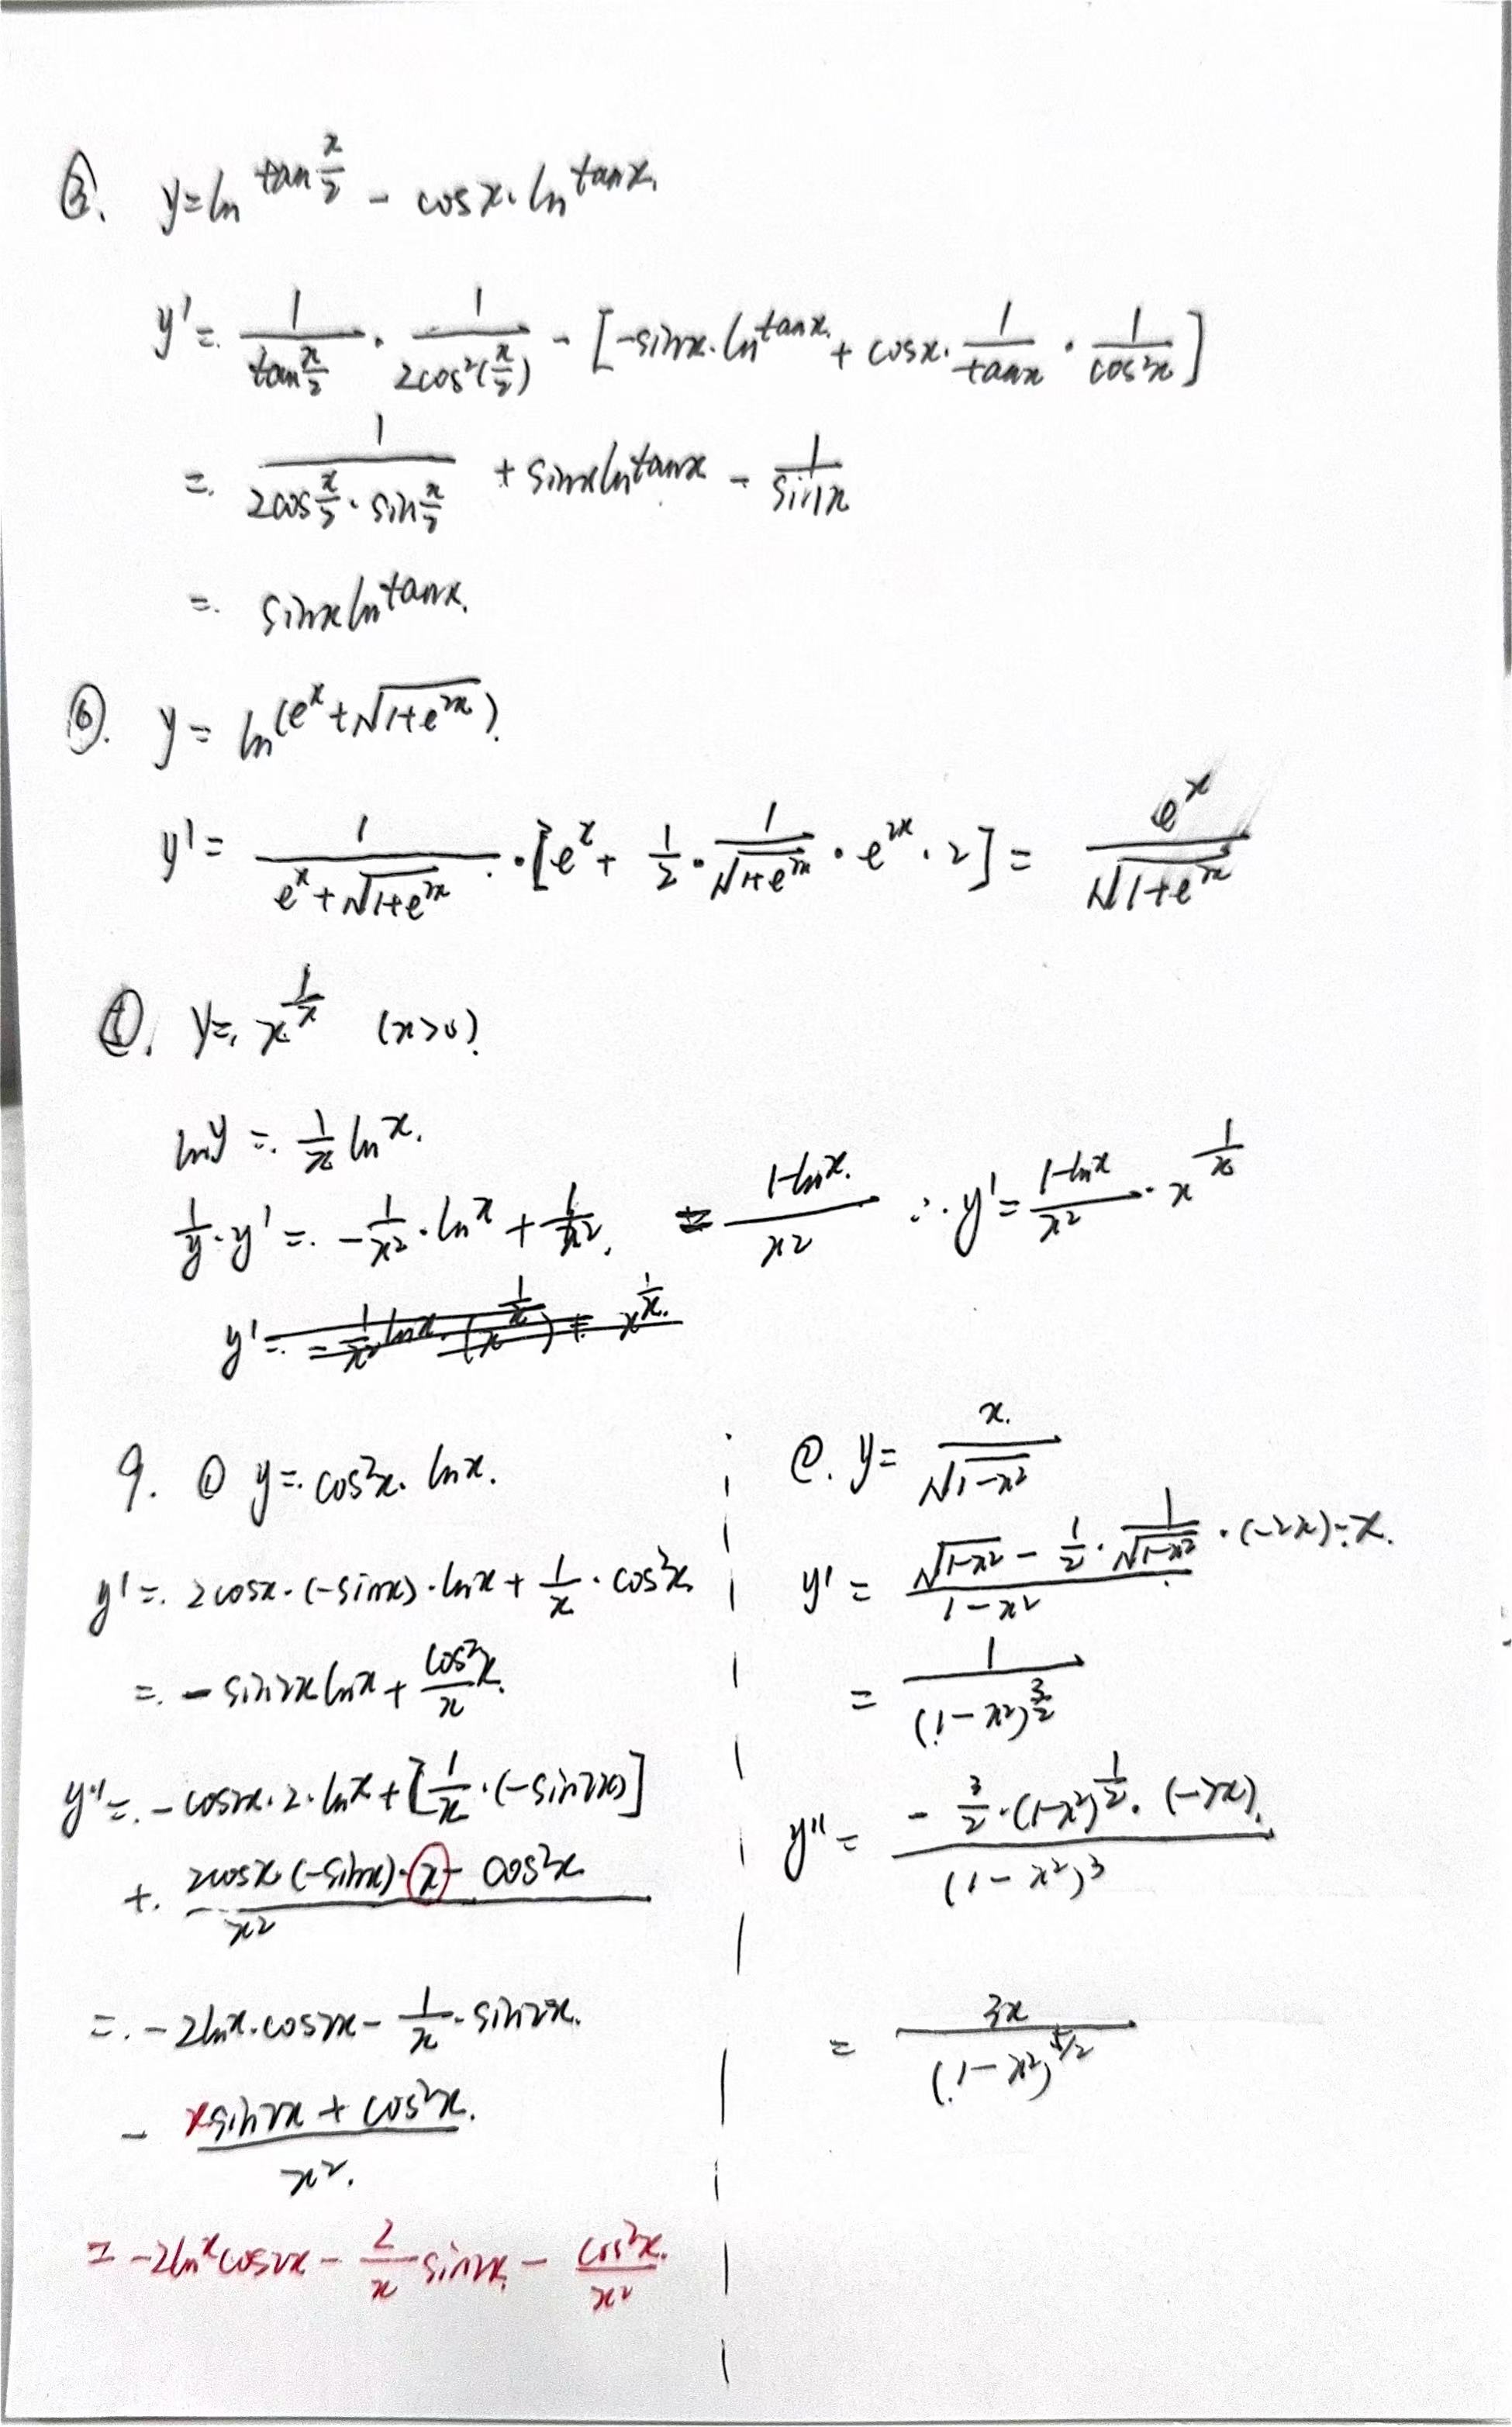 ③. y=ln tan x/2 - cosx·ln tanx.
y'= 1/(tan x/2) · 1/(2cos²(x/2)) - [-sinx·ln tanx + cosx·1/tanx · 1/cos²x]
= 1/(2cos x/2 · sin x/2) + sinx ln tanx - 1/sinx
= sinx ln tanx.
⑥. y = ln(e^x+√(1+e^2x)).
y'= 1/(e^x+√(1+e^2x)) · [e^x + 1/2 · 1/√(1+e^2x) · e^2x · 2] = e^x/√(1+e^2x)
y= x^(1/x) (x>0).
lny = 1/x lnx.
1/y · y' = -1/x² · lnx + 1/x² = (1-lnx)/x² ∴ y' = (1-lnx)/x² · x^(1/x)
y'=
9. ① y= cos²x· lnx.
y'= 2cosx·(-sinx)·lnx + 1/x · cos²x
= -sin2x lnx + cos²x/x
y''= -cos2x·2·lnx + [1/x · (-sin2x)]
+ (2cosx·(-sinx)·x - cos²x)/x²
= -2lnx·cos2x - 1/x · sin2x.
- (xsin2x + cos²x)/x².
= -2lnx cos2x - 2/x sin2x - cos²x/x²
②. y= x/√(1-x²)
y' = (√(1-x²) - 1/2 · 1/√(1-x²) · (-2x)·x)/(1-x²)
= 1/(1-x²)^(3/2)
y'' = (-3/2·(1-x²)^(1/2) · (-2x))/(1-x²)³
= 3x/(1-x²)^(5/2)